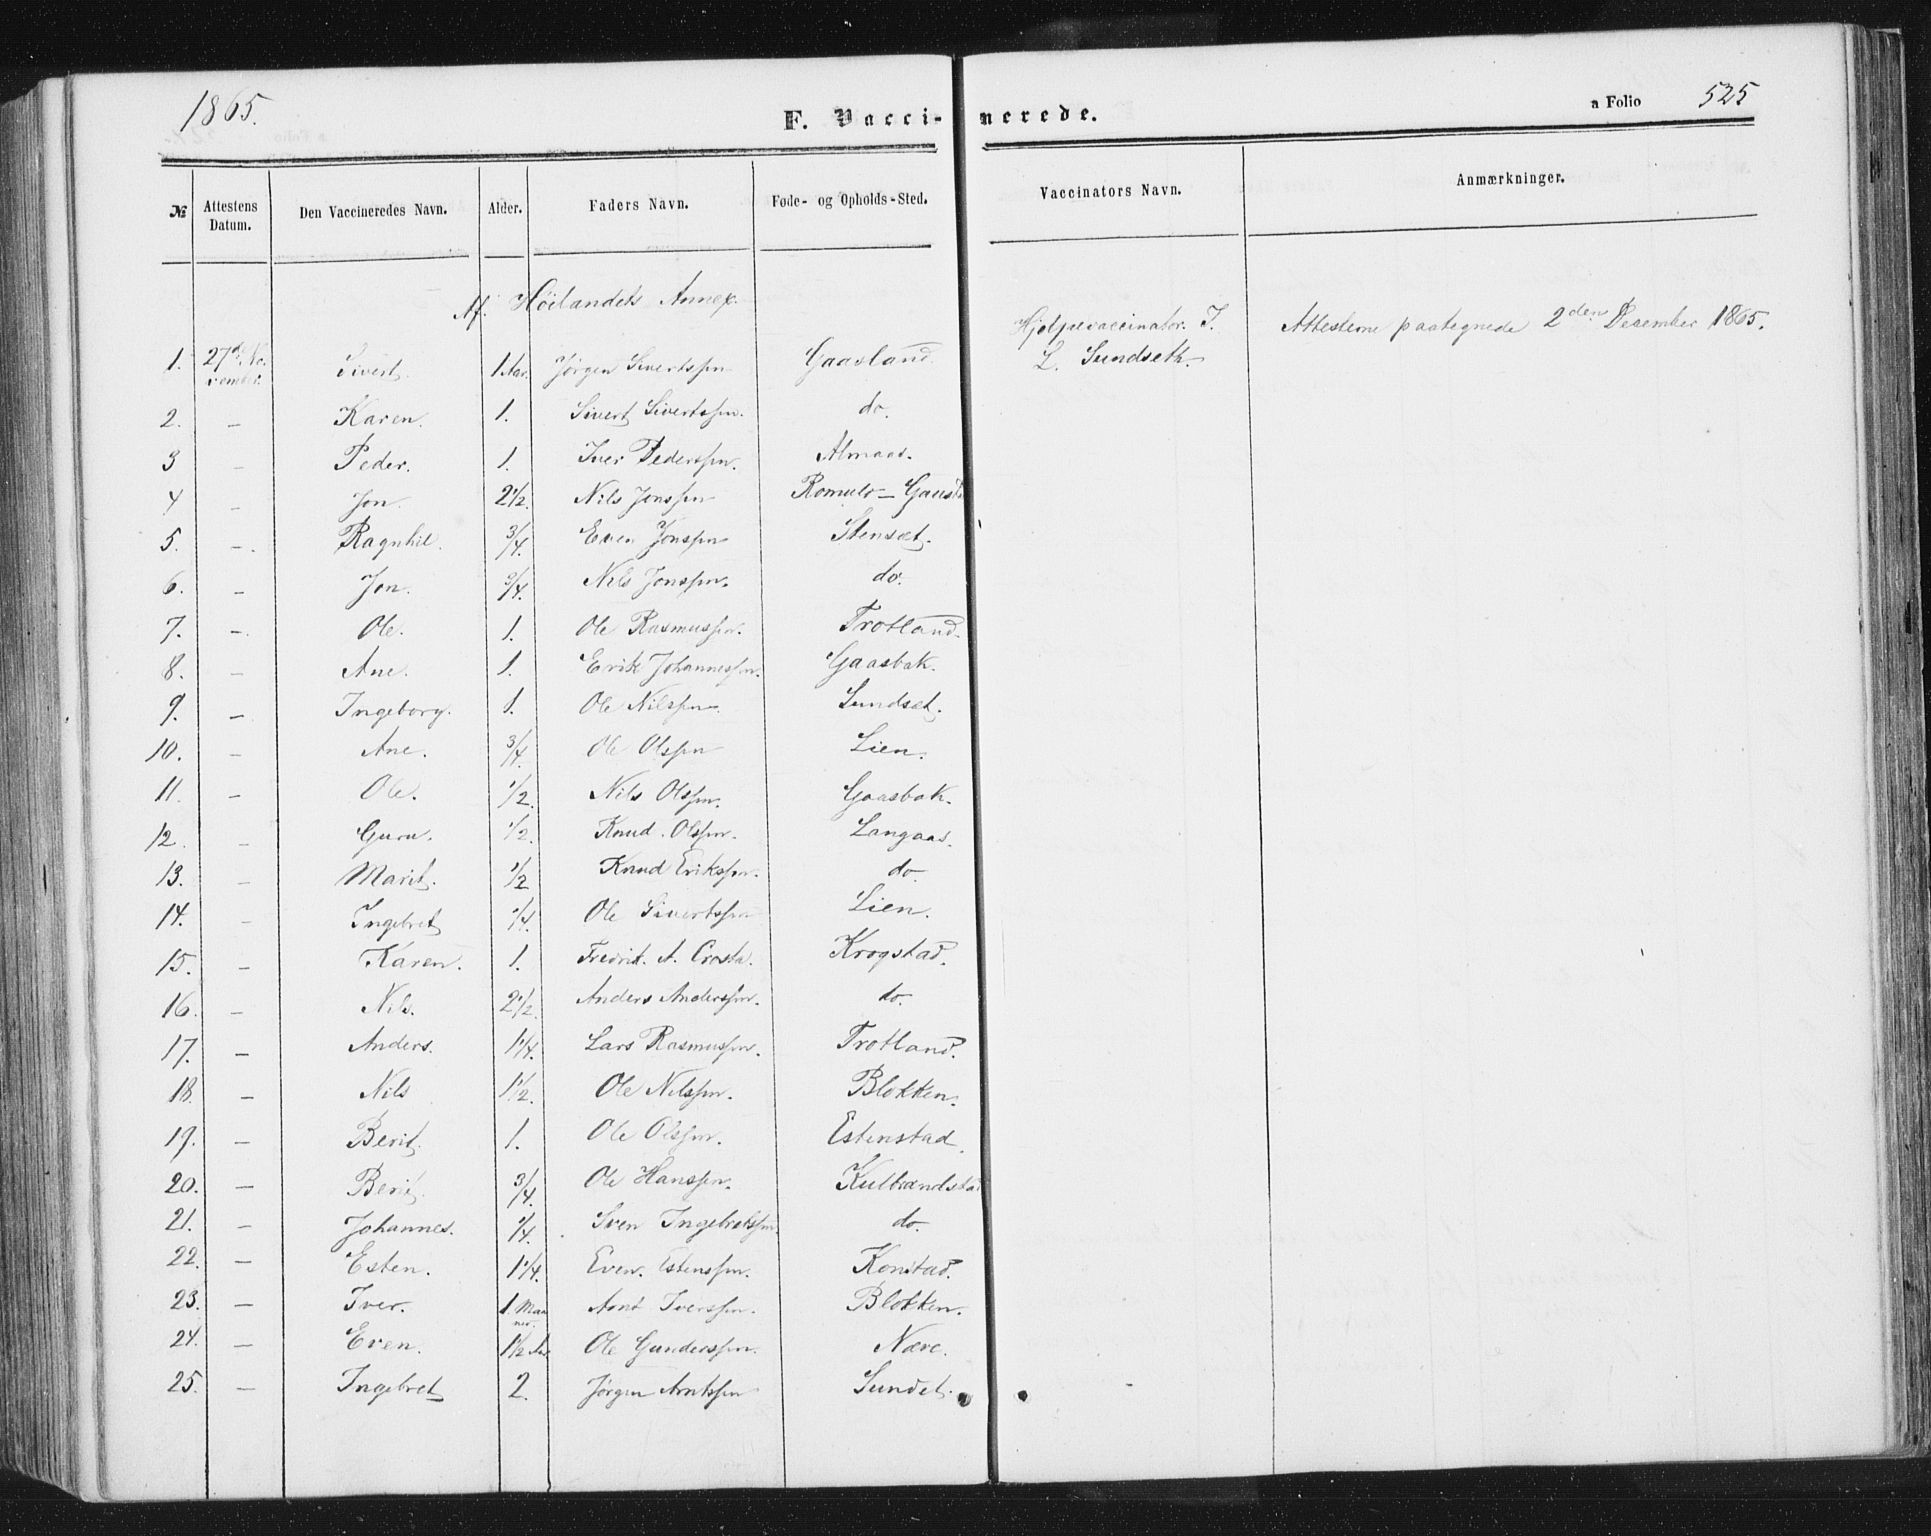 1865.
F. Vacci-nerede.
a Folio 525
№ Attestens Datum. Den Vaccineredes Navn. Alder. Faders Navn. Føde- og Opholds-Sted. Vaccinators Navn. Anmærkninger.
Af. Höilandets Annex.
1. 27de No-vember. Sivert. 1 Aar. Jörgen Sivertssen Gaasland. Hjelpevaccinator. I. L. Sundseth. Attesterne paategnede 2den December 1865.
2. — Karen. 1. Sivert Sivertssen. do.
3 — Peder. 1. Iver Pederssen. Almaas.
4 — Jon. 2 1/2. Nils Jonssen Romulo —
5. — Ragnhil. 3/4. Even Jonssen Stenset.
6. — Jon. 3/4. Nils Jonssen. do.
7. — Ole. 1. Ole Rasmussen. Trotland.
8. — Ane. 1. Erik Johannessen. Gaasbak.
9. — Ingeborg. 1. Ole Nilssen. Sundset.
10. — Ane. 3/4. Ole Olssen Lien.
11. — Ole. 1/2. Nils Olssen. Gaasbak.
12. — Guru. 1/2. Knud. Olssen. Langaas.
13. — Marit. 1/2 Knud Erikssen. do.
14. — Ingebret 1/4. Ole Sivertssen Lien.
15. — Karen. 1. Fredrik. A. Crosta. Krogstad.
16. — Nils. 2 1/2. Anders Anderssen. do.
17. — Anders. 1 1/4. Lars Rasmussen. Trotland.
18. — Nils 1 1/2. Ole Nilssen. Blokken.
19. — Berit. 1. Ole Olssen. Estenstad.
20. — Berit. 3/4. Ole Hanssen. Kulbrandstad
21. — Johannes. 1/4. Sven Ingebretssen. do.
22. — Esten. 1 1/4. Even. Estenssen. Konstad.
23. — Iver. 1 Maa-ned. Arnt Iverssen. Blokken.
24. — Even. 1 1/2 Aar Ole Gunderssen. Nære.
25. — Ingebret 2. Jörgen Arntssen Sundet.